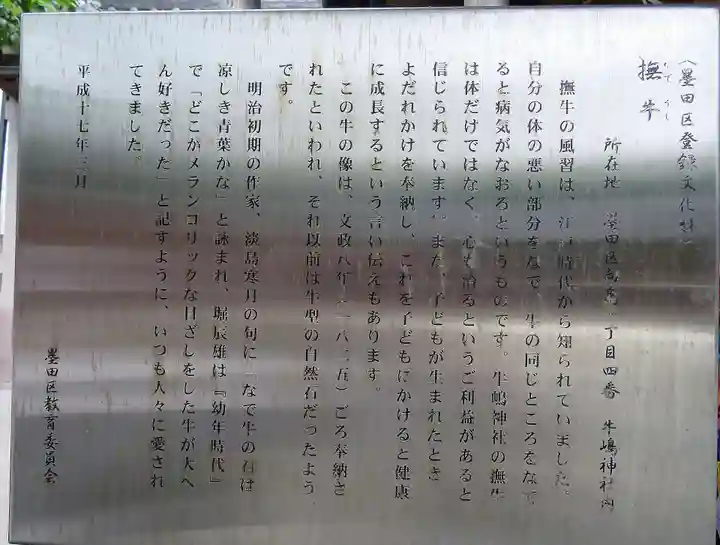 （墨田区登録文化財）
撫牛
なで うし
所在地 墨田区向島一丁目四番 牛嶋神社内
撫牛の風習は、江戸時代から知られていました。
自分の体の悪い部分をなで、牛の同じところをなで
ると病気がなおるというものです。牛嶋神社の撫牛
は体だけではなく、心も治るというご利益があると
信じられています。また、子どもが生まれたとき
よだれかけを奉納し、これを子どもにかけると健康
に成長するという言い伝えもあります。
この牛の像は、文政八年（一八二五）ごろ奉納さ
れたといわれ、それ以前は牛型の自然石だったよう
です。
明治初期の作家、淡島寒月の句に「なで牛の石は
涼しき青葉かな」と詠まれ、堀辰雄は『幼年時代』
で「どこかメランコリックな目ざしをした牛が大へ
ん好きだった」と記すように、いつも人々に愛され
てきました。
平成十七年三月
墨田区教育委員会